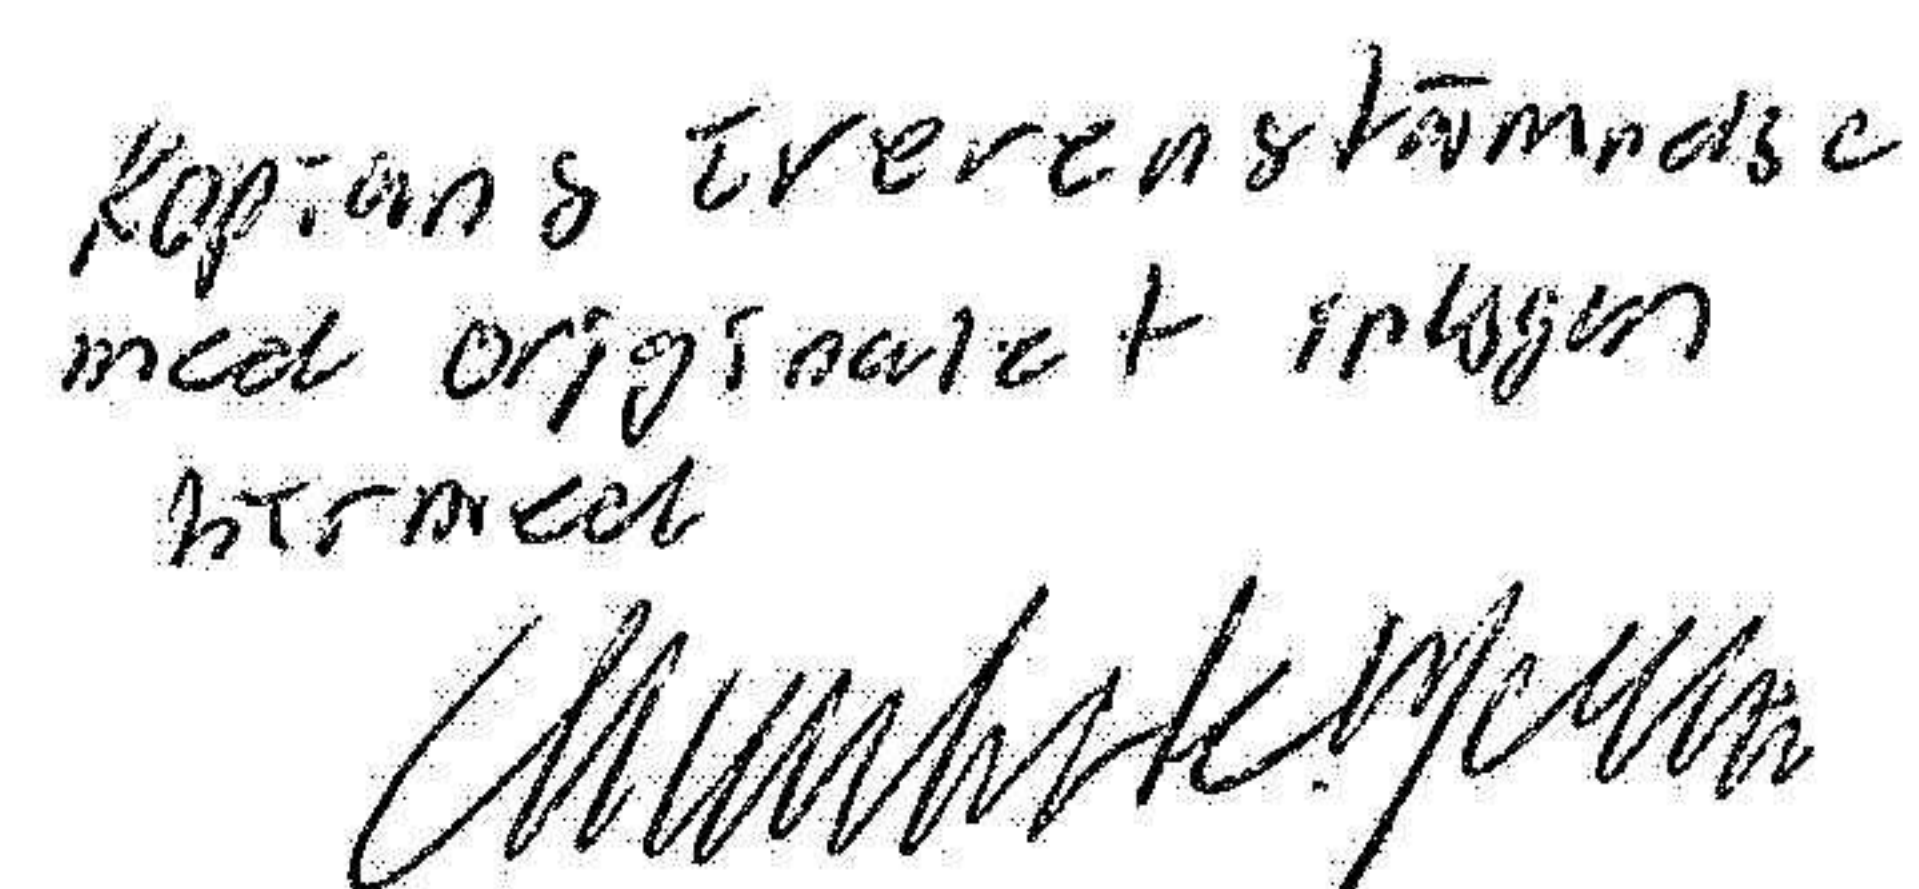 Kopians överensstämmdse
med originalet intygan
härmed